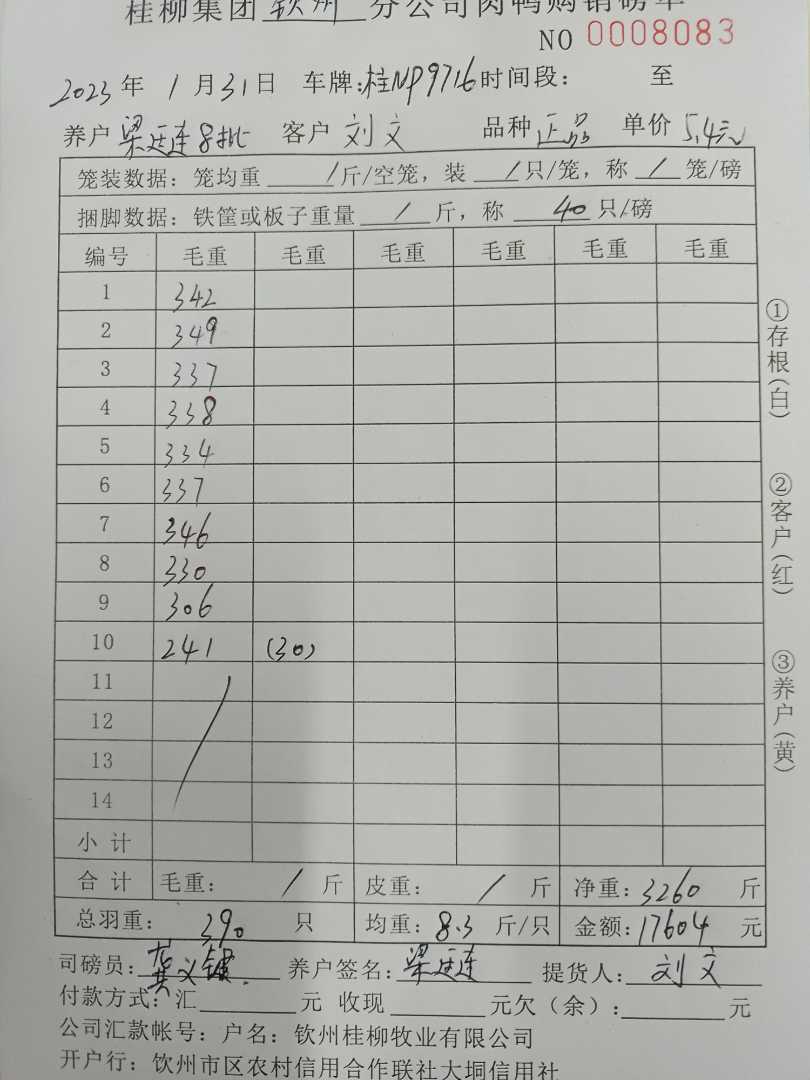 桂柳集团 钦州 分公司肉鸭购销磅单
NO 0008083
2023 年 1 月 31 日 车牌:桂NP9716 时间段: 至
养户 梁廷连 8批 客户 刘文 品种 正品 单价 5.4元
笼装数据: 笼均重 / 斤/空笼, 装 / 只/笼, 称 / 笼/磅
捆脚数据: 铁筐或板子重量 / 斤, 称 40 只/磅
编号 毛重 毛重 毛重 毛重 毛重 毛重
1 342
2 349
3 337
4 338
5 334
6 337
7 346
8 330
9 306
10 241 (30)
11
12
13
14
小计
合计 毛重: / 斤 皮重: / 斤 净重: 3260 斤
总羽重: 390 只 均重: 8.3 斤/只 金额: 17604 元
司磅员: 龚义键 养户签名: 梁廷连 提货人: 刘文
付款方式: 汇 元 收现 元欠(余): 元
公司汇款帐号: 户名: 钦州桂柳牧业有限公司
开户行: 钦州市区农村信用合作联社大垌信用社
①存根(白)
②客户(红)
③养户(黄)